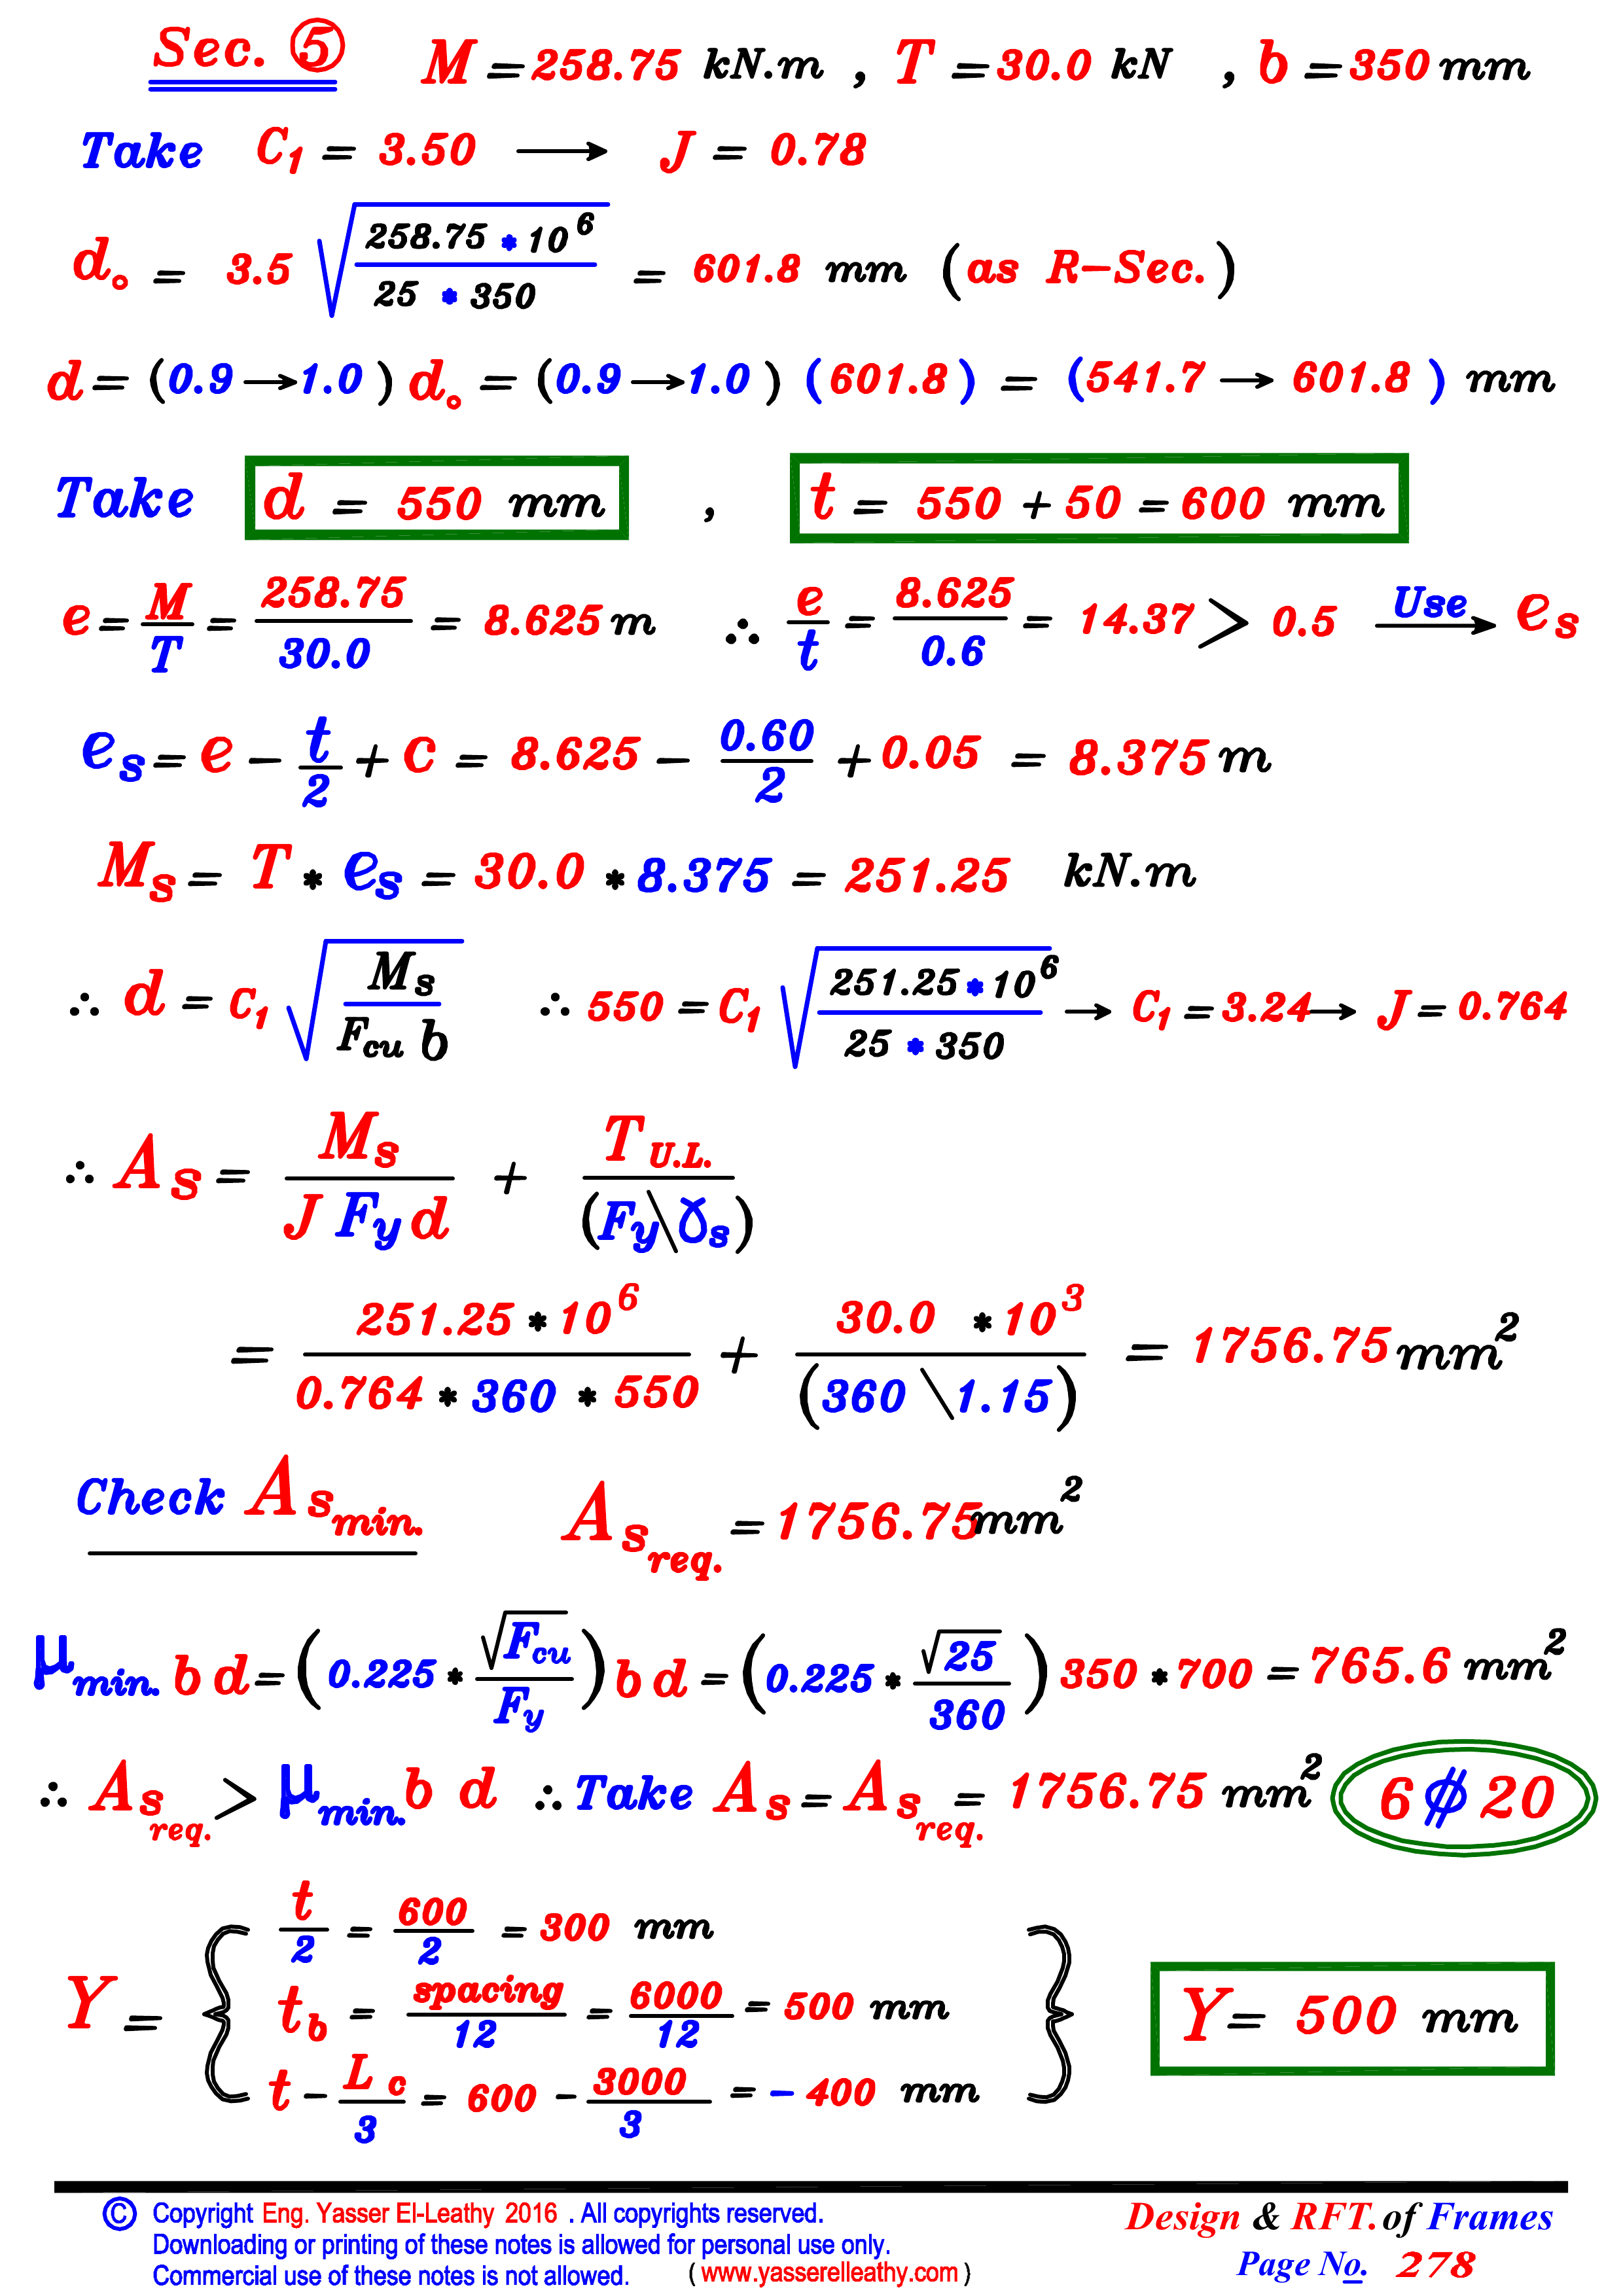 Sec. ⑤ M = 258.75 kN.m , T = 30.0 kN , b = 350 mm
Take C₁ = 3.50 ⟶ J = 0.78
d∘ = 3.5 √(258.75 * 10⁶ / 25 * 350) = 601.8 mm (as R-Sec.)
d = (0.9 → 1.0) d∘ = (0.9 → 1.0) (601.8) = (541.7 → 601.8) mm
Take d = 550 mm , t = 550 + 50 = 600 mm
e = M/T = 258.75/30.0 = 8.625 m ∴ e/t = 8.625/0.6 = 14.37 > 0.5 Use ⟶ e s
e s = e − t/2 + c = 8.625 − 0.60/2 + 0.05 = 8.375 m
M s = T * e s = 30.0 * 8.375 = 251.25 kN.m
∴ d = C₁ √(M s / F cu b) ∴ 550 = C₁ √(251.25 * 10⁶ / 25 * 350) → C₁ = 3.24 → J = 0.764
∴ A s = M s / J F y d + T U.L. / (F y \ γ s)
= 251.25 * 10⁶ / 0.764 * 360 * 550 + 30.0 * 10³ / (360 \ 1.15) = 1756.75 mm²
Check A s min. A s req. = 1756.75 mm²
μ min. b d = (0.225 * √F cu / F y) b d = (0.225 * √25 / 360) 350 * 700 = 765.6 mm²
∴ A s req. > μ min. b d ∴ Take A s = A s req. = 1756.75 mm² 6 ⌀ 20
Y = { t/2 = 600/2 = 300 mm
t b = spacing/12 = 6000/12 = 500 mm
t − L c/3 = 600 − 3000/3 = − 400 mm } Y = 500 mm
© Copyright Eng. Yasser El-Leathy 2016 . All copyrights reserved.
Downloading or printing of these notes is allowed for personal use only.
Commercial use of these notes is not allowed. ( www.yasserelleathy.com )
Design & RFT. of Frames
Page No. 278